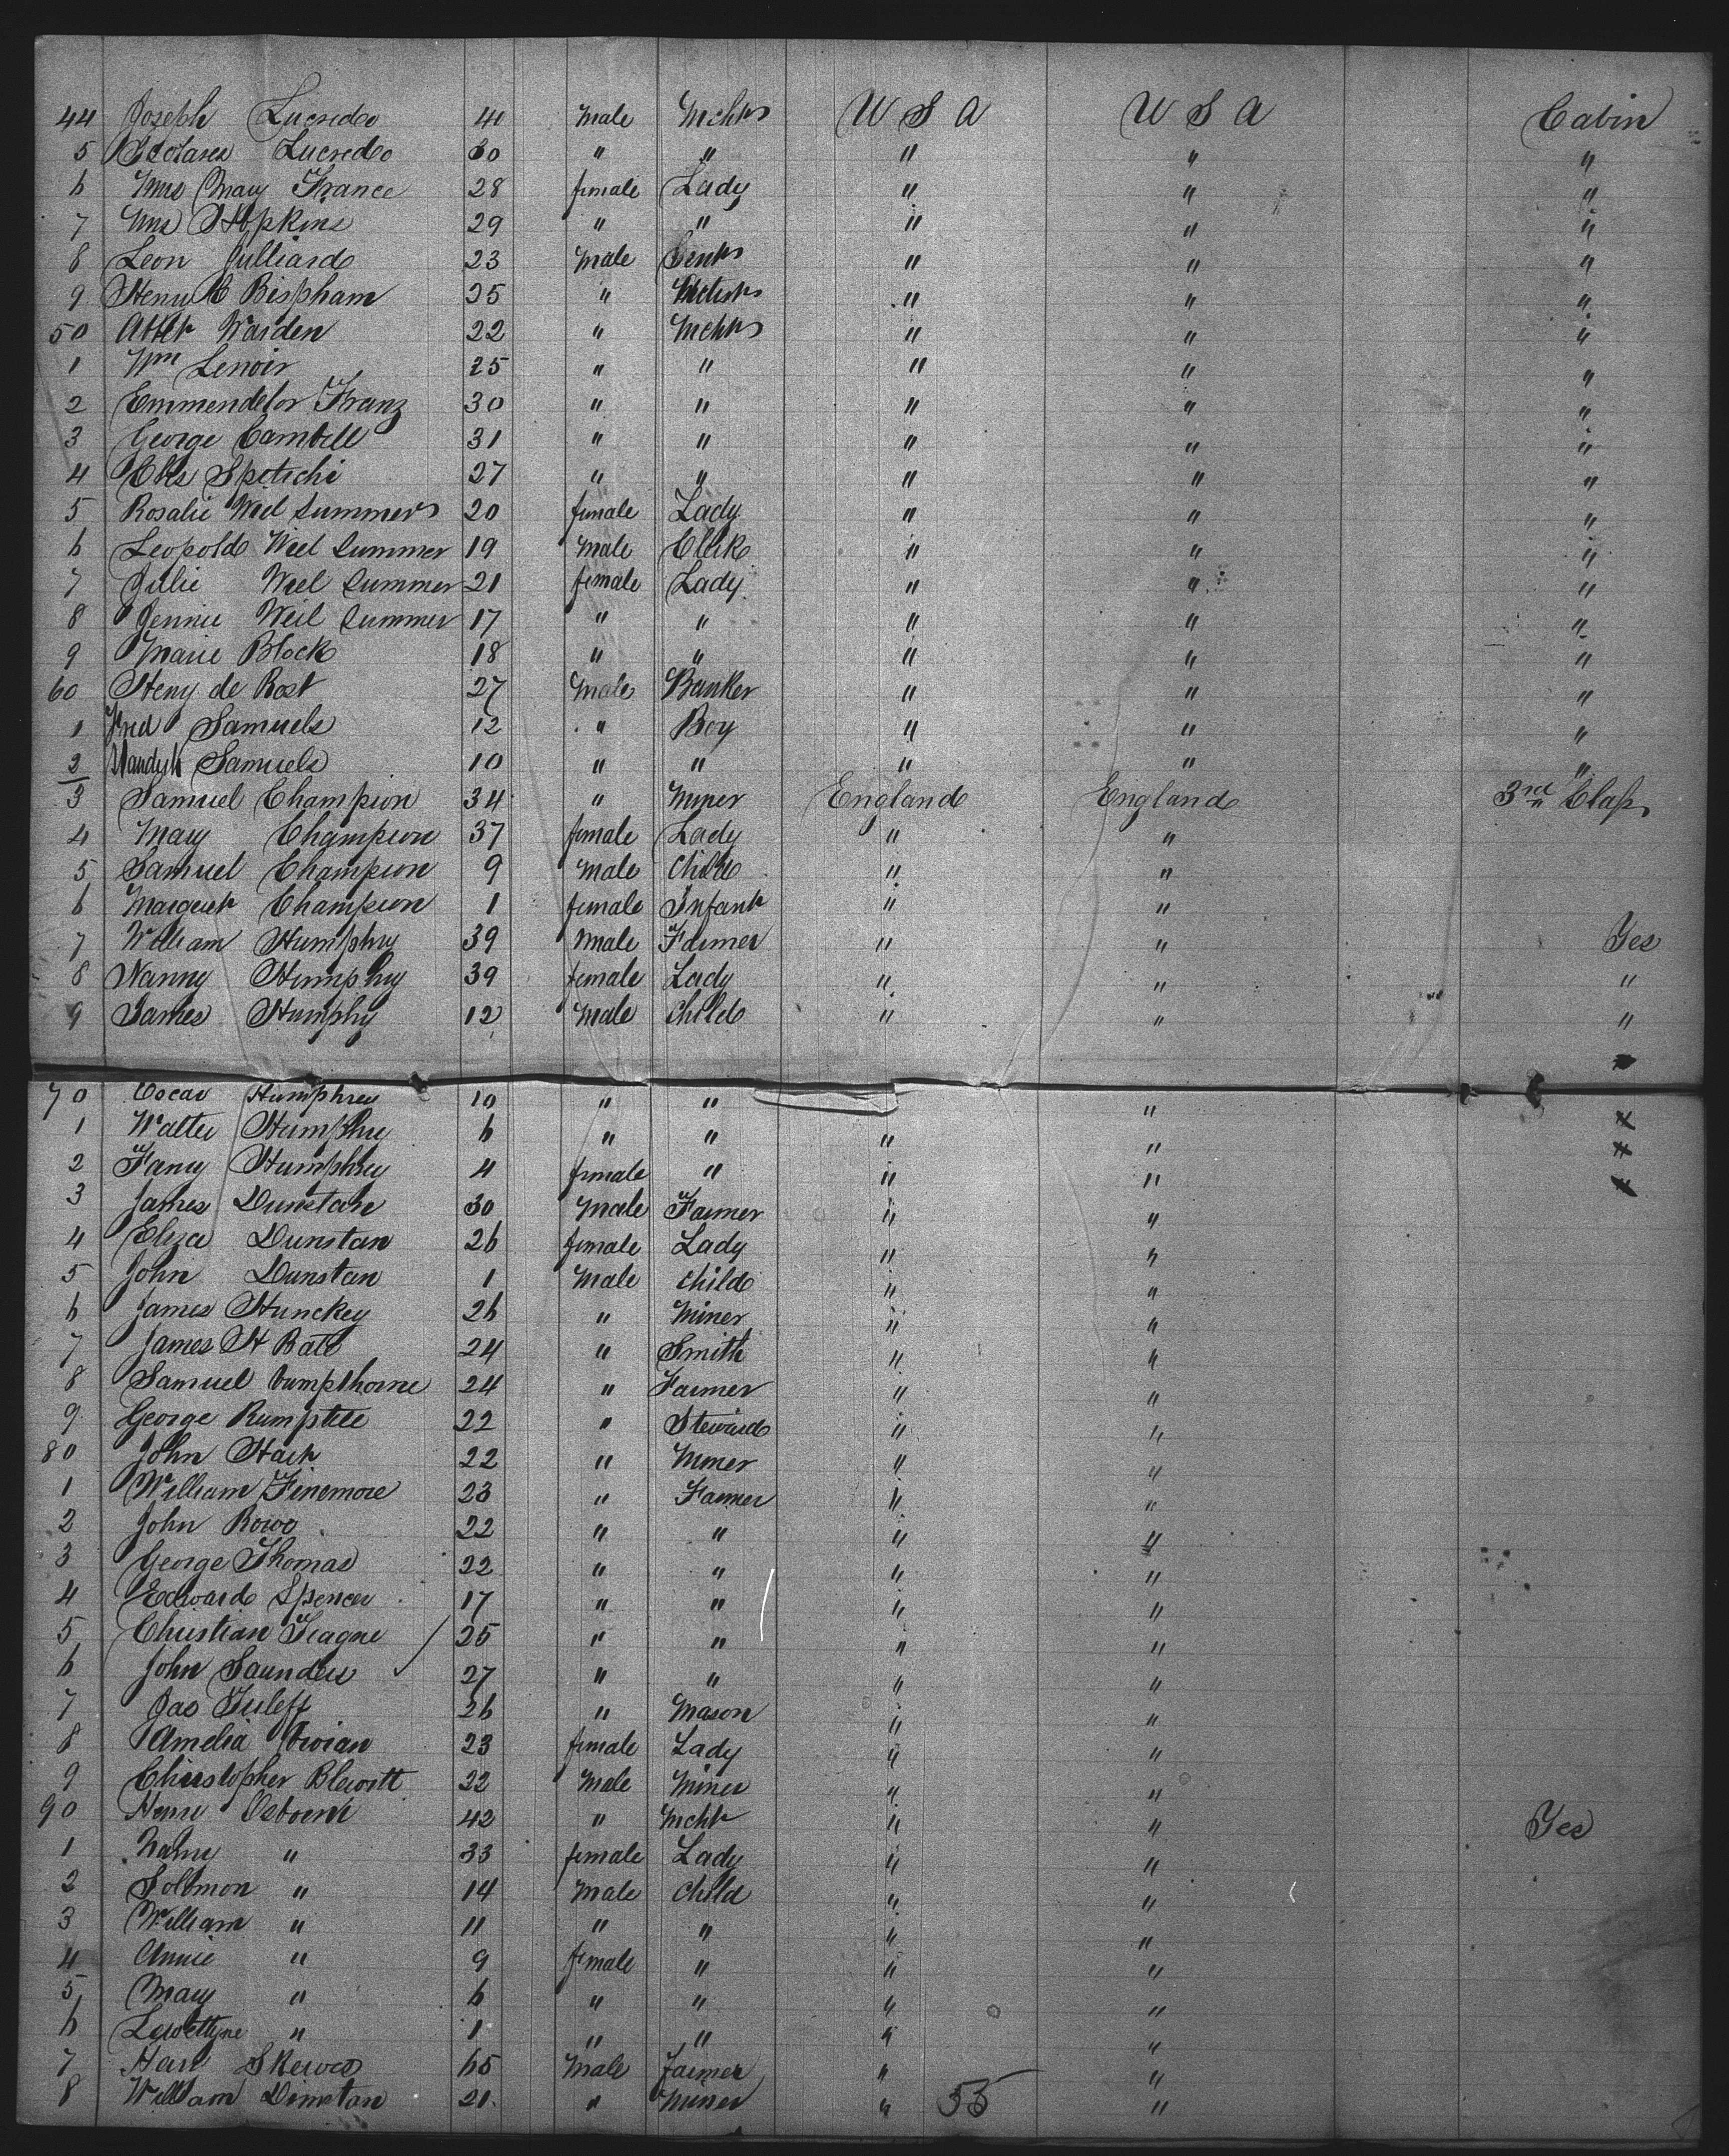 44 Joseph Lucredo 41 Male Mchts U S A U S A Cabin
5 Lucredo 30 " " " " "
6 Mrs Mary France 28 female Lady " " "
7 Mrs Hopkins 29 " " " " "
8 Leon Julliard 23 Male Gents " " "
9 Henry C Bispham 25 " " " "
50 Warden 22 " Mchts " " "
1 Wm Lenoir 25 " " " " "
2 Emmendelor Franz 30 " " " " "
3 George Cambell 31 " " " " "
4 27 " " " " "
5 Rosalie Weil Summers 20 female Lady " " "
6 Leopold Weil Summer 19 Male Clerk " " "
7 Julie Weil Summer 21 female Lady " " "
8 Jennie Weil Summer 17 " " " " "
9 Marie Block 18 " " " " "
60 Heny de Rost 27 Male Banker " " "
1 Fred Samuels 12 " Boy " " "
2 Vandyk Samuels 10 " " " " "
3 Samuel Champion 34 " Miner England England 3rd Class
4 Mary Champion 37 female Lady " "
5 Samuel Champion 9 Male Child " "
6 Margret Champion 1 female Infant " "
7 William Humphry 39 Male Farmer " " Yes
8 Nanny Humphry 39 female Lady " " "
9 James Humphy 12 Male Child " " "
70 Oscar Humphrey 10 " " "
1 Walter Humphry 6 " " " "
2 Fany Humphrey 4 female " " "
3 James Dunstan 30 Male Farmer " "
4 Eliza Dunstan 26 female Lady " "
5 John Dunstan 1 Male Child " "
6 James Hunckey 26 " Miner " "
7 James H Bate 24 " Smith " "
8 Samuel 24 " Farmer " "
9 George 22 " Steward " "
80 John 22 " Miner " "
1 William Finemore 23 " Farmer " "
2 John Rowe 22 " " " "
3 George Thomas 22 " " " "
4 Edward Spencer 17 " " " "
5 Christian Teague 25 " " " "
6 John Saunders 27 " " " "
7 Jas Juleff 26 " Mason " "
8 Amelia Vivian 23 female Lady " "
9 Christopher Blewitt 22 Male Miner " "
90 Henry Osborne 42 " Mcht " " Yes
1 " 33 female Lady " "
2 Solomon " 14 Male Child " "
3 William " 11 " " " "
4 Annie " 9 female " " "
5 Mary " 6 " " " "
6 " 1 " " " "
7 Skewes 65 Male Farmer " "
8 William Dunstan 21 " Miner " 55 "